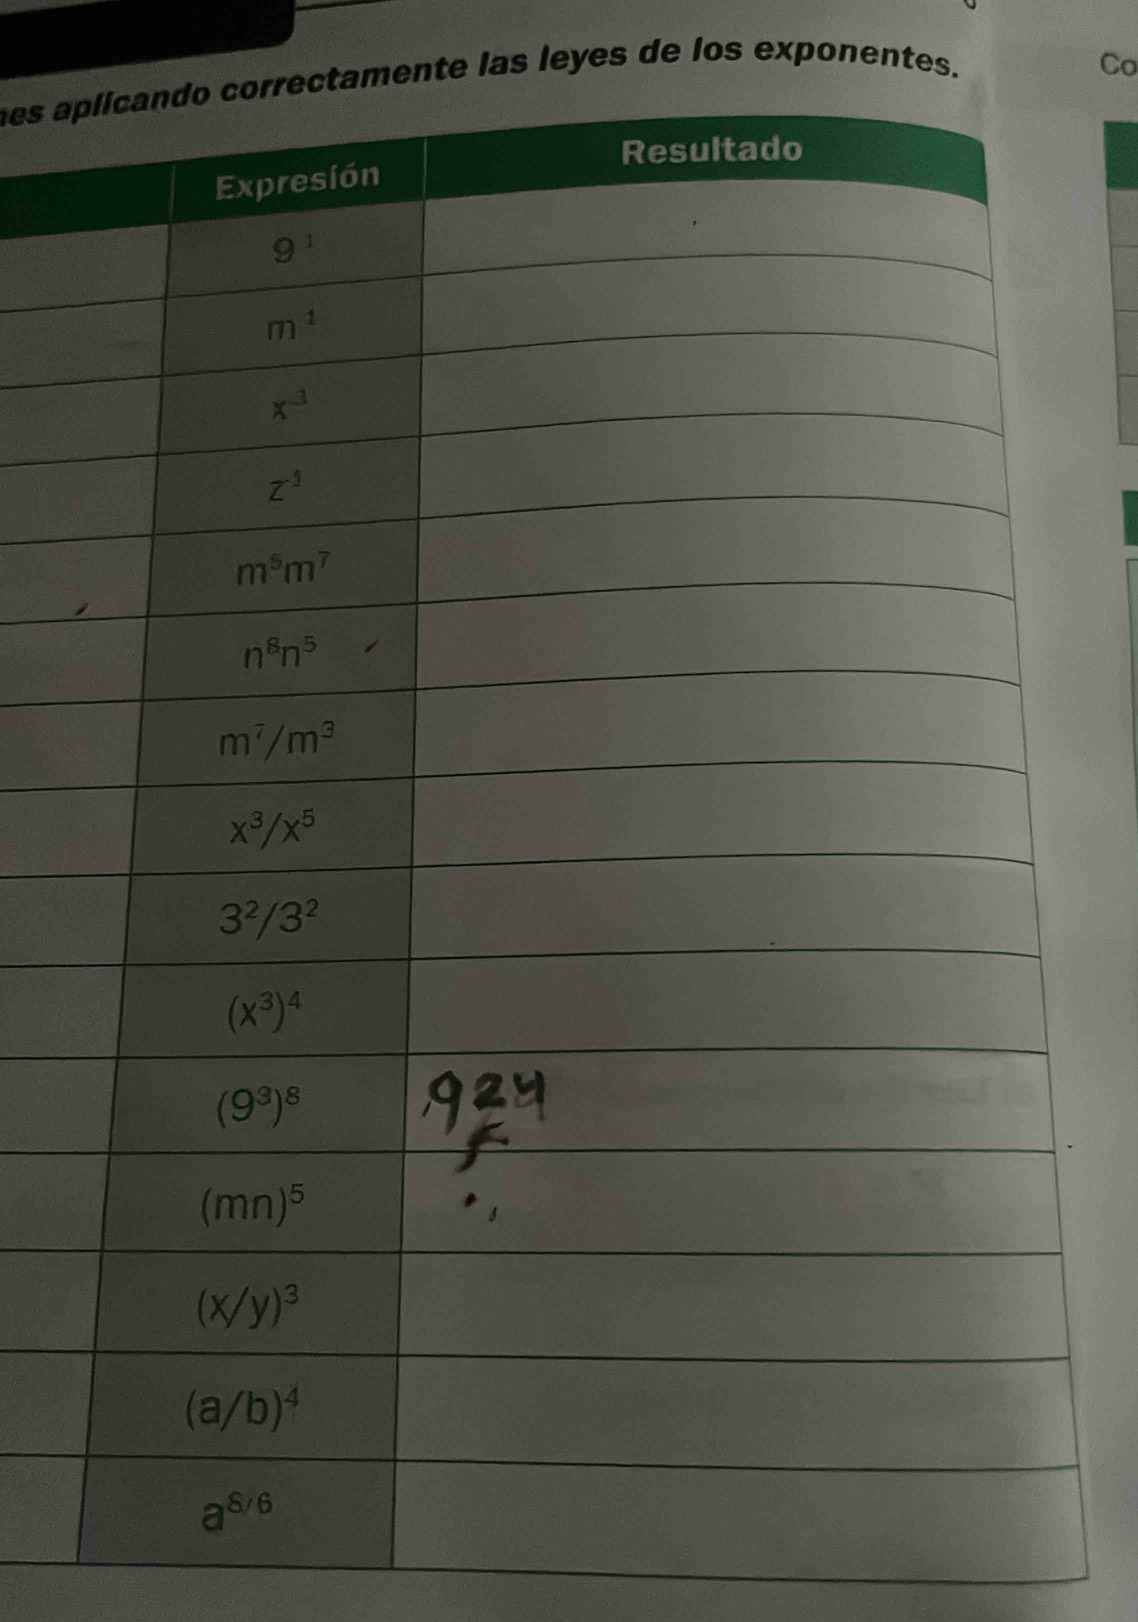 aplicando correctamente las leyes de los exponentes.
Co
Expresión Resultado
9¹
m
x
z
m⁵m⁷
n⁸n⁵
m⁷/m³
x³/x⁵
3²/3²
(x³)⁴
(9³)⁸ 924
(mn)⁵
(x/y)³
(a/b)⁴
a⁸/⁶